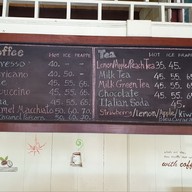 ffee HOT ICE FRAPPE
resso 40. -
ricano 40. 50. -
e 45. 55. 65.
puccino 45. 55. 65.
a 45. 55. 65.
amel Macchiato 50. 60. 70.
Tea HOT ICE FRAPPE
Lemon/Apple/Peach Tea 35. 45.
Milk Tea 45. 55. 65
Milk Green Tea 45. 55. 65
Chocolate 45. 55. 65
Italian Soda 45.
Strawberry/Lemon/Apple/Kiwi
with coff